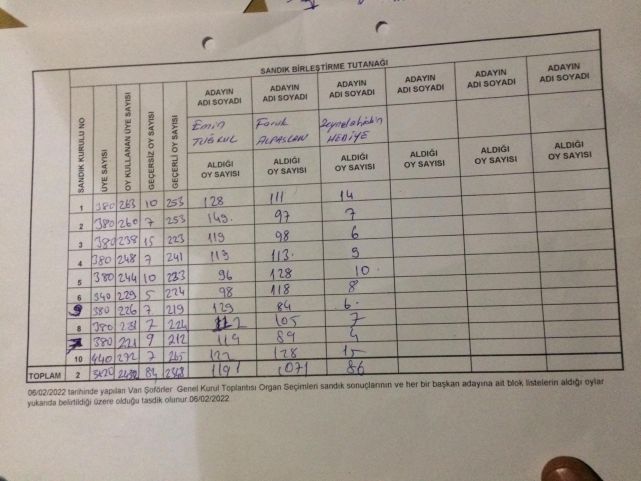 SANDIK BİRLEŞTİRME TUTANAĞI
SANDIK KURULU NO ÜYE SAYISI OY KULLANAN ÜYE SAYISI GEÇERSİZ OY SAYISI GEÇERLİ OY SAYISI
ADAYIN ADAYIN ADAYIN ADAYIN ADAYIN ADAYIN
ADI SOYADI ADI SOYADI ADI SOYADI ADI SOYADI ADI SOYADI ADI SOYADI
Emin Faruk
TUĞRUL ALPASLAN HEDİYE
ALDIĞI ALDIĞI ALDIĞI ALDIĞI ALDIĞI ALDIĞI
OY SAYISI OY SAYISI OY SAYISI OY SAYISI OY SAYISI OY SAYISI
1 380 263 10 253 128 111 14
2 380 260 7 253 149 97 7
3 380 238 15 223 119 98 6
4 380 248 7 241 119 113 9
5 380 244 10 96 128 10
6 340 229 5 224 98 118 8
9 380 226 7 219 129 84 6
8 380 231 7 224 112 105 7
7 380 221 9 212 119 89 4
10 440 272 7 265 122 128 15
TOPLAM 2 84 1191 1071 86
06/02/2022 tarihinde yapılan Van Şoförler Genel Kurul Toplantısı Organ Seçimleri sandık sonuçlarının ve her bir başkan adayına ait blok listelerin aldığı oylar
yukarıda belirtildiği üzere olduğu tasdik olunur.06/02/2022